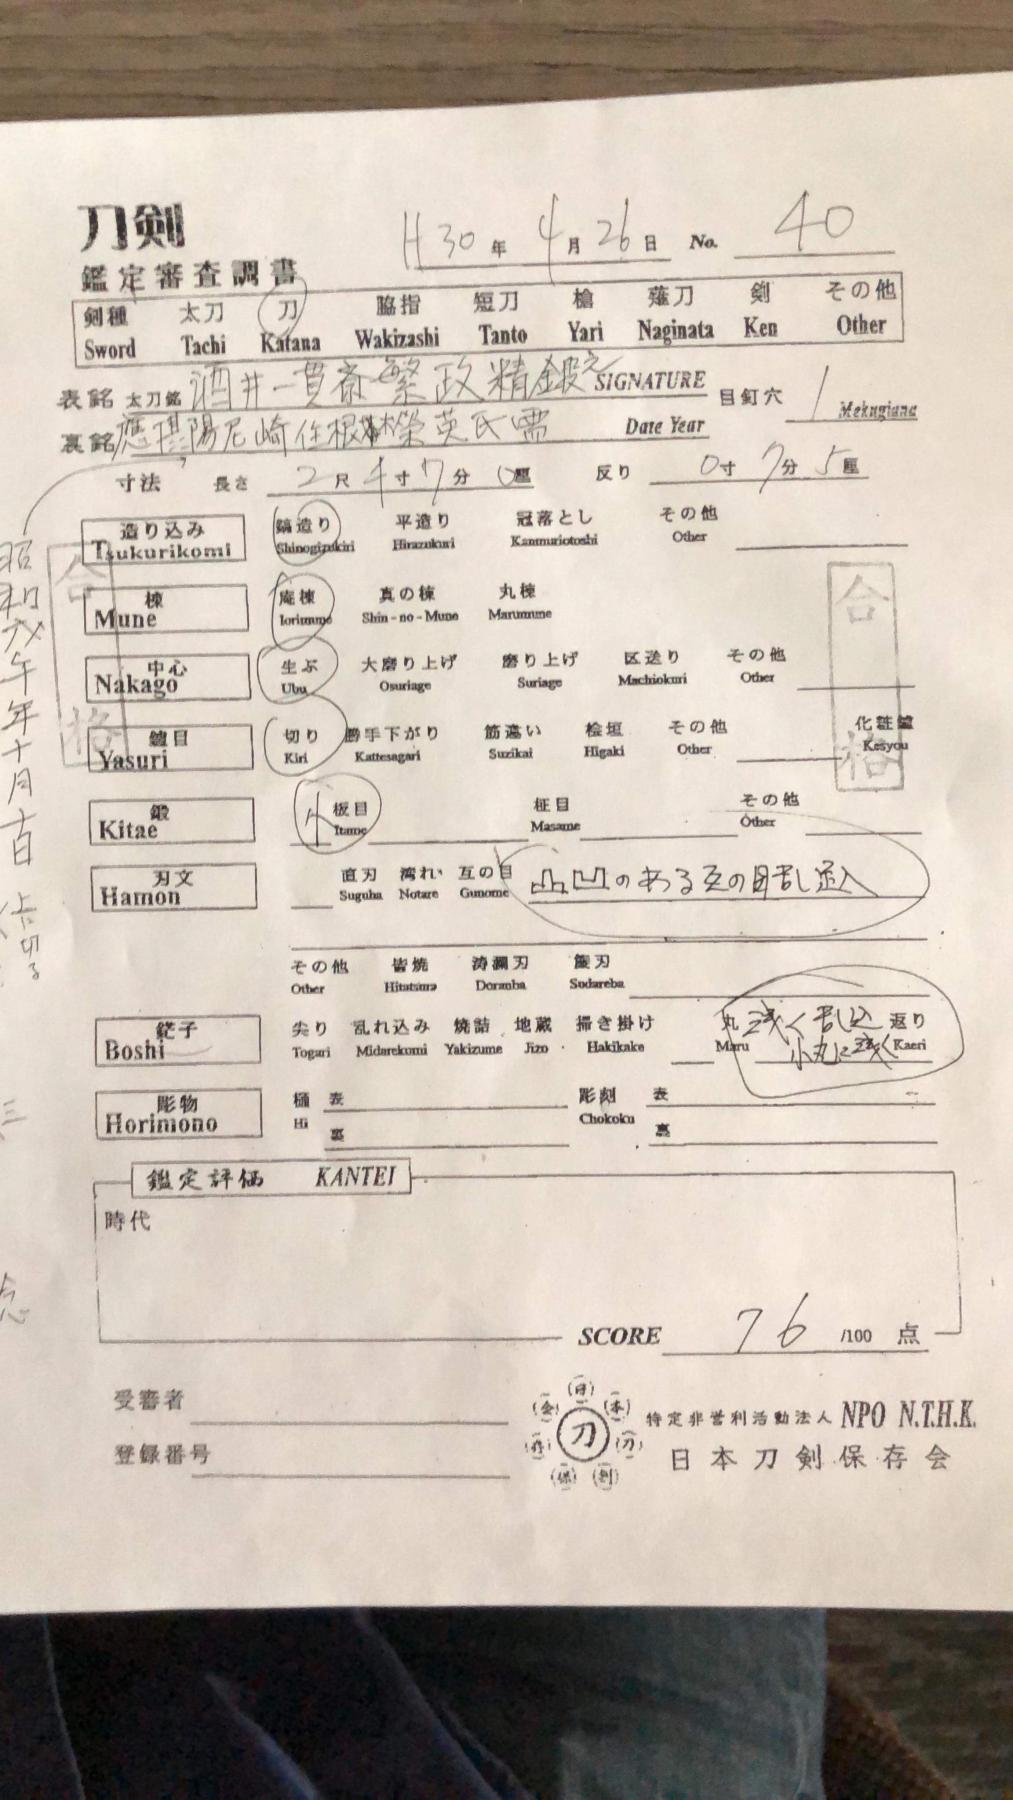 刀剣
鑑定審査調書
H30年 4月26日 No. 40
剣種 太刀 刀 脇指 短刀 槍 薙刀 剣 その他
Sword Tachi Katana Wakizashi Tanto Yari Naginata Ken Other
表銘 太刀銘 酒井一貫斎繁政精鍛之 SIGNATURE 目釘穴 1 Mekugiana
裏銘 應摂陽尼崎住根本榮英氏需 Date Year
寸法 長さ 2尺4寸7分0厘 反り 0寸7分5厘
造り込み 鎬造り 平造り 冠落とし その他
Tsukurikomi Shinogizukiri Hirazukuri Kanmuriotoshi Other
棟 庵棟 真の棟 丸棟
Mune Iorimune Shin-no-Mune Marumune
中心 生ぶ 大磨り上げ 磨り上げ 区送り その他
Nakago Ubu Osuriage Suriage Machiokuri Other
鑢目 切り 勝手下がり 筋違い 桧垣 その他 化粧鑢
Yasuri Kiri Kattesagari Suzikai Higaki Other Kesyou
鍛 小 板目 柾目 その他
Kitae Itame Masame Other
刃文 直刃 湾れ 互の目 凸凹のある互の目乱込
Hamon Suguha Notare Gunome
その他 皆焼 涛瀾刃 簾刃
Other Hitatsura Doranba Sudareba
鋩子 尖り 乱れ込み 焼詰 地蔵 掃き掛け 丸 浅く乱込 返り
Boshi Togari Midarekomi Yakizume Jizo Hakikake Maru 小丸に浅く Kaeri
彫物 樋 表 彫刻 表
Horimono Hi 裏 Chokoku 裏
鑑定評価 KANTEI
時代
SCORE 76 /100 点
受審者
登録番号
特定非営利活動法人 NPO N.T.H.K.
日本刀剣保存会
日本刀剣保存会
刀
合格
合格
昭和 午年十月吉日